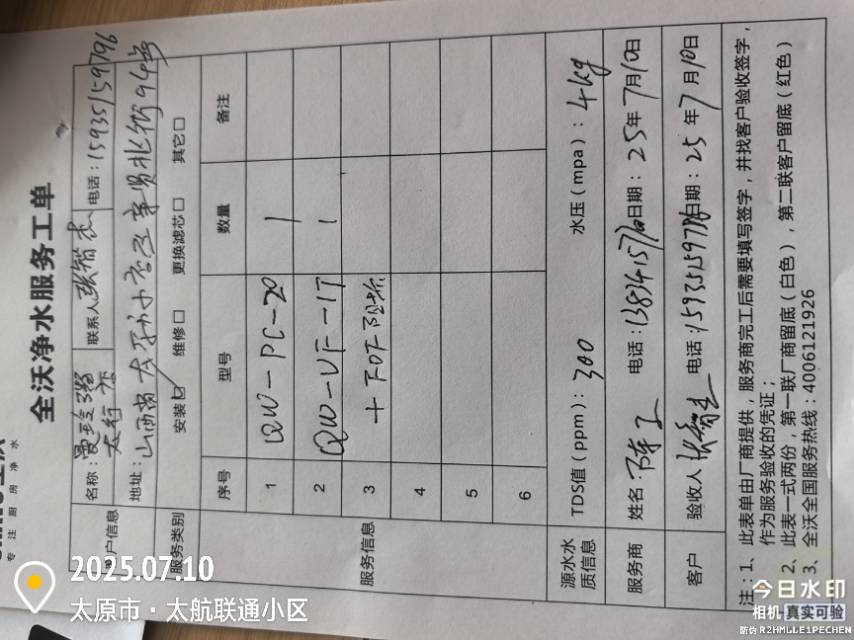 专注厨房净水
全沃净水服务工单
客户信息 名称：曼玲粥 太行店 联系人 张智杰 电话：15935159796
地址：山西省太原市小店区亲贤北街94号
服务类别 安装☑ 维修□ 更换滤芯□ 其它□
服务信息 序号 型号 数量 备注
1 QW-PC-20 1
2 QW-UF-1T 1
3 +FOF阻垢
4
5
6
源水水质信息 TDS值（ppm）：300 水压（mpa）：4kg
服务商 姓名： 电话： 日期：25年7月10日
客户 验收人 张智杰 电话：15935159796 日期：25年7月10日
注：1、此表单由厂商提供，服务商完工后需要填写签字，并找客户验收签字，
作为服务验收的凭证；
2、此表一式两份，第一联厂商留底（白色），第二联客户留底（红色）
3、全沃全国服务热线：4006121926
2025.07.10
太原市·太航联通小区
今日水印
相机 真实可验
防伪 R2HMLLE1PECHEN